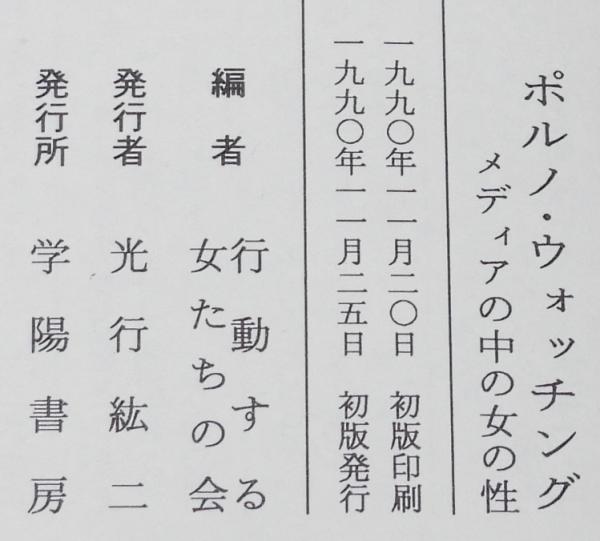 ポルノ・ウォッチング
メディアの中の女の性
一九九〇年一一月二〇日　初版印刷
一九九〇年一一月二五日　初版発行
編者　行動する
女たちの会
発行者　光行紘二
発行所　学陽書房